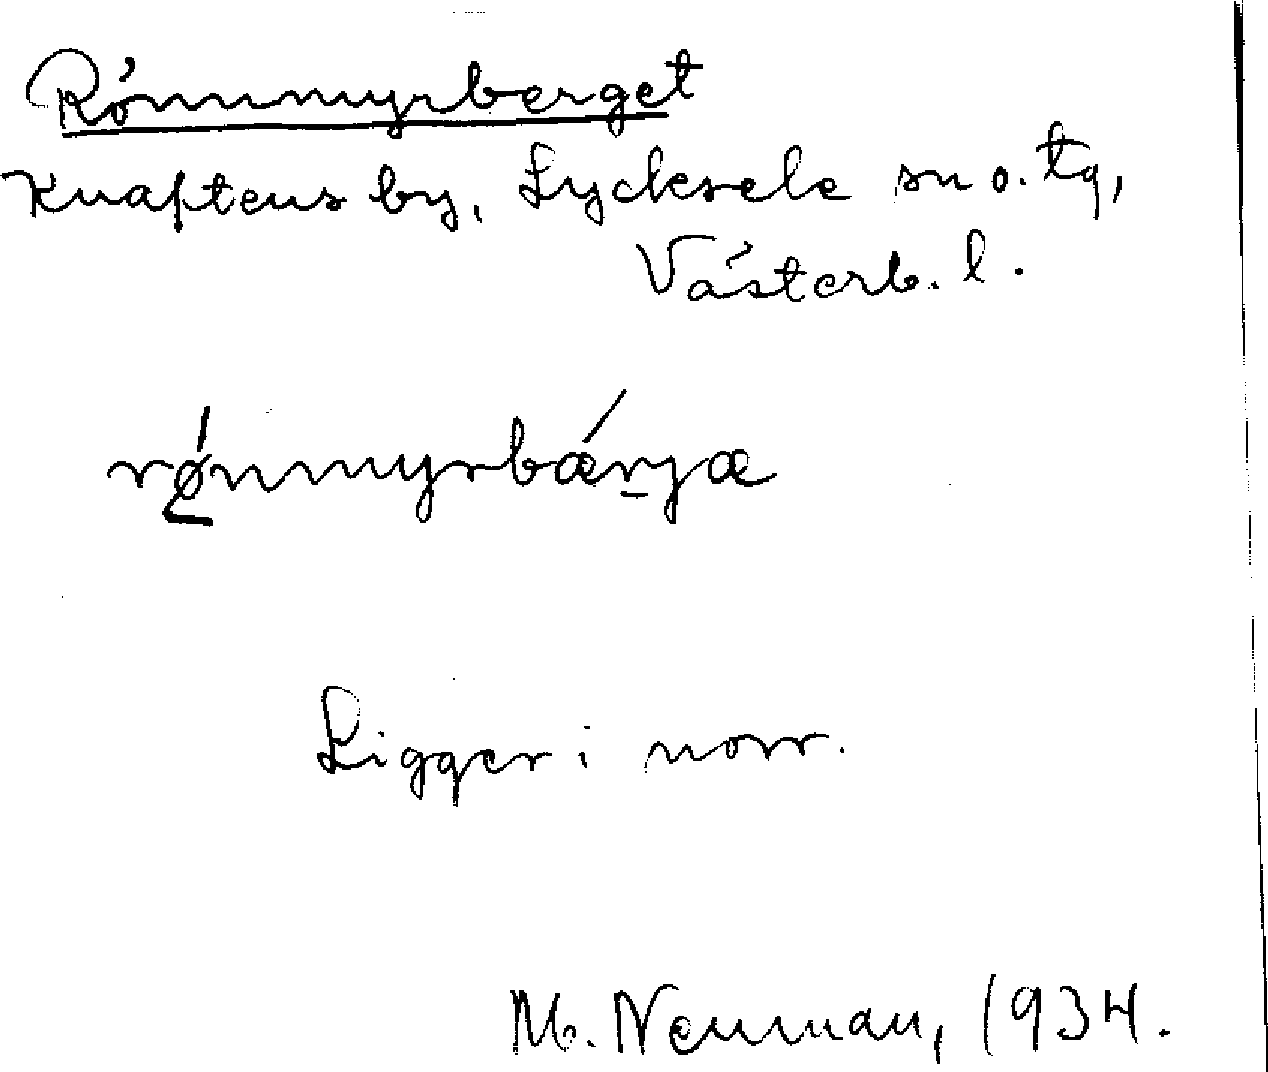 Rönnmyrberget
Knaftens by, Lycksele sn o. tg,
Västerb. l.
rǿ̨nmyrbǽrjæ
Ligger i norr.
M. Neuman, 1934.